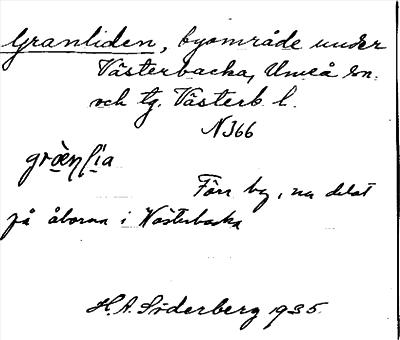 Granliden, byområde under
Västerbacka, Umeå sn.
och tg. Västerb. l.
N366
græ̀nḷia
Förr by, nu delat
på åborna i Västerbacka
H. A. Söderberg 1935.